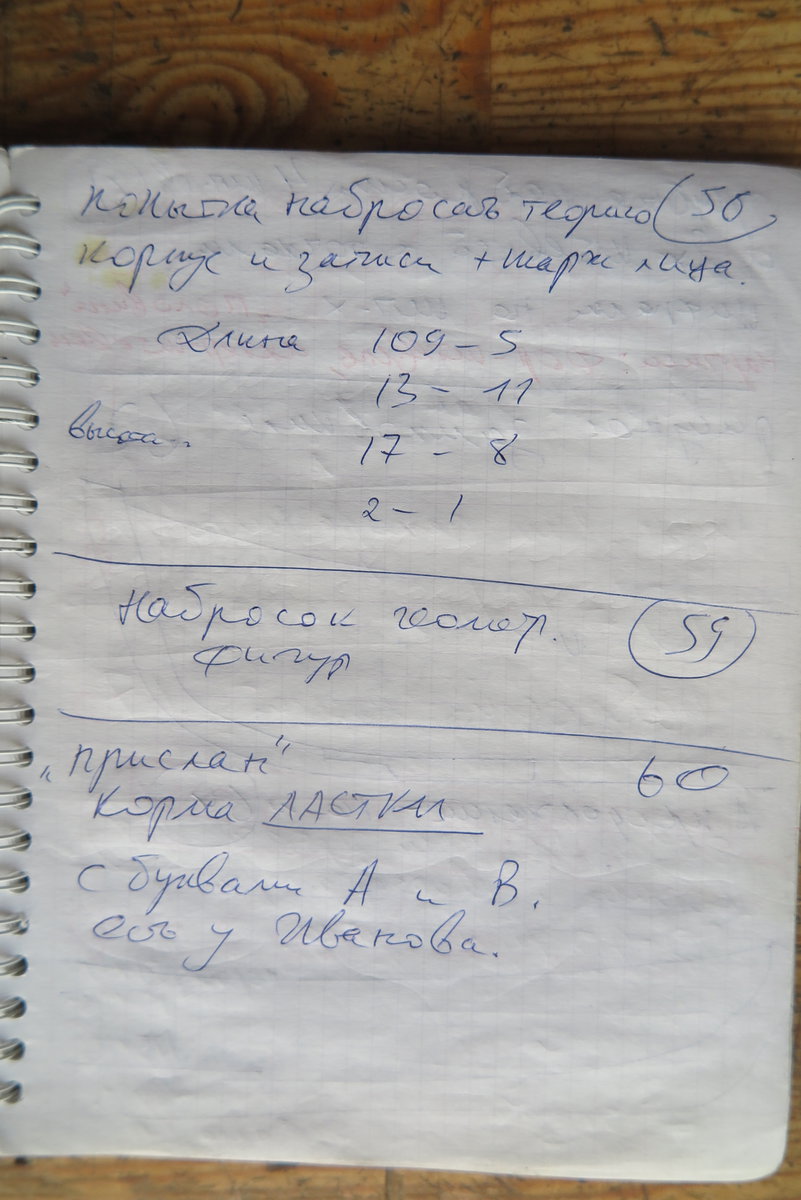 попытка набросать теорию 58
корпус и записи + шарж лица.
Длина 109 - 5
13 - 11
высота 17 - 8
2 - 1
Набросок геометр. 59
фигур
„прислан" 60
корма ЛАСТКИ
с буквами А и В.
есть у Иванова.